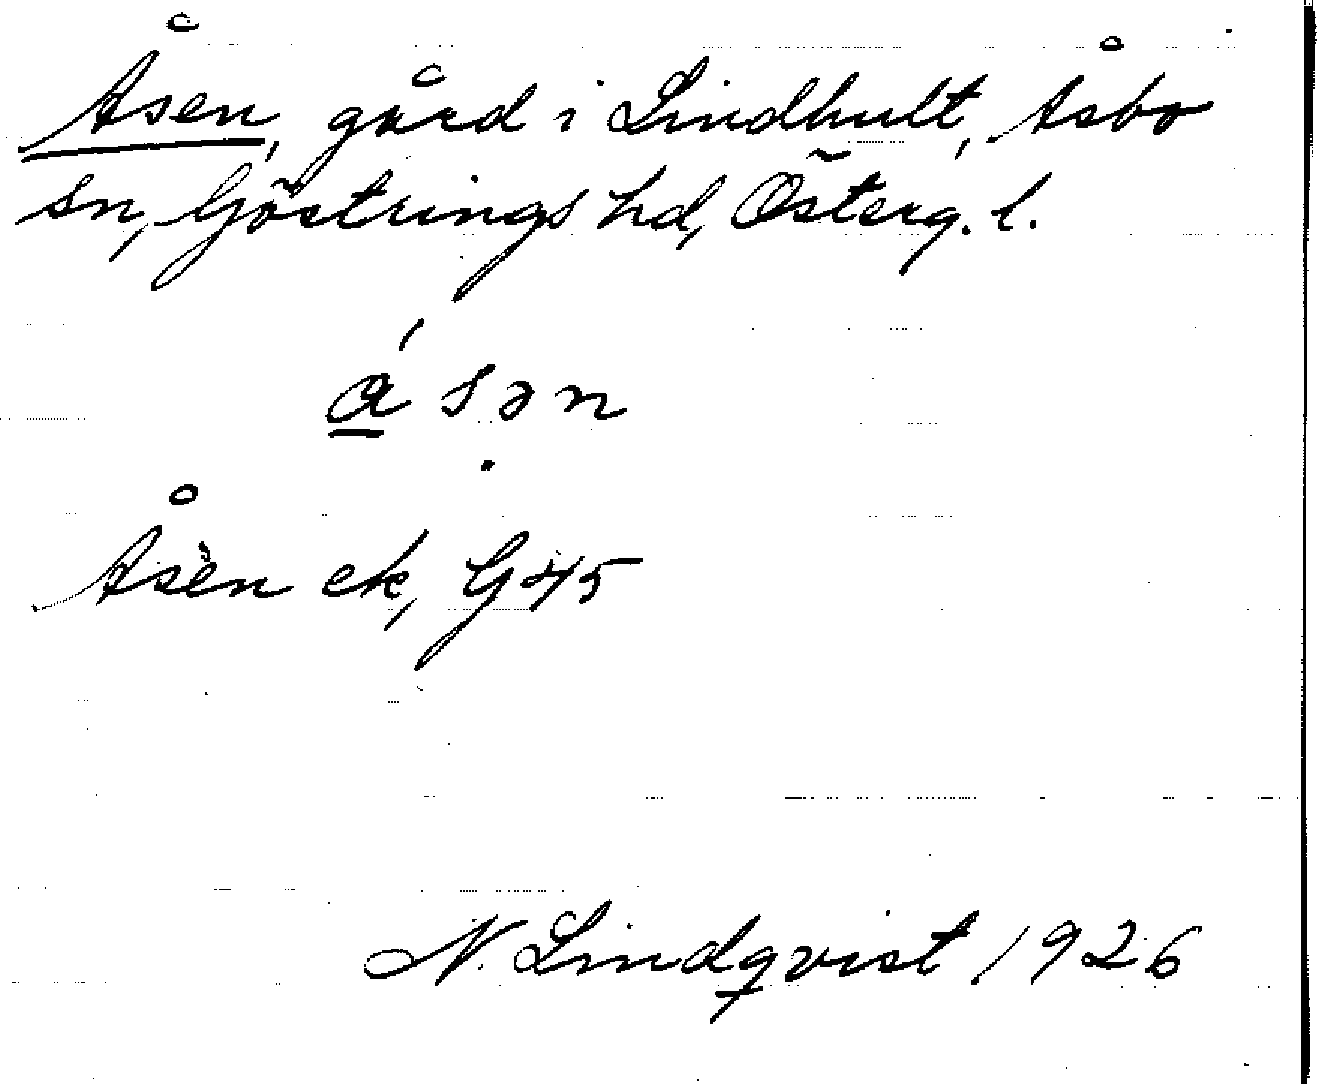 Åsen, gård i Lindhult, Åsbo
sn, Göstrings hd, Österg. l.
ása̱n
Åsèn ek, G45
N. Lindqvist 1926